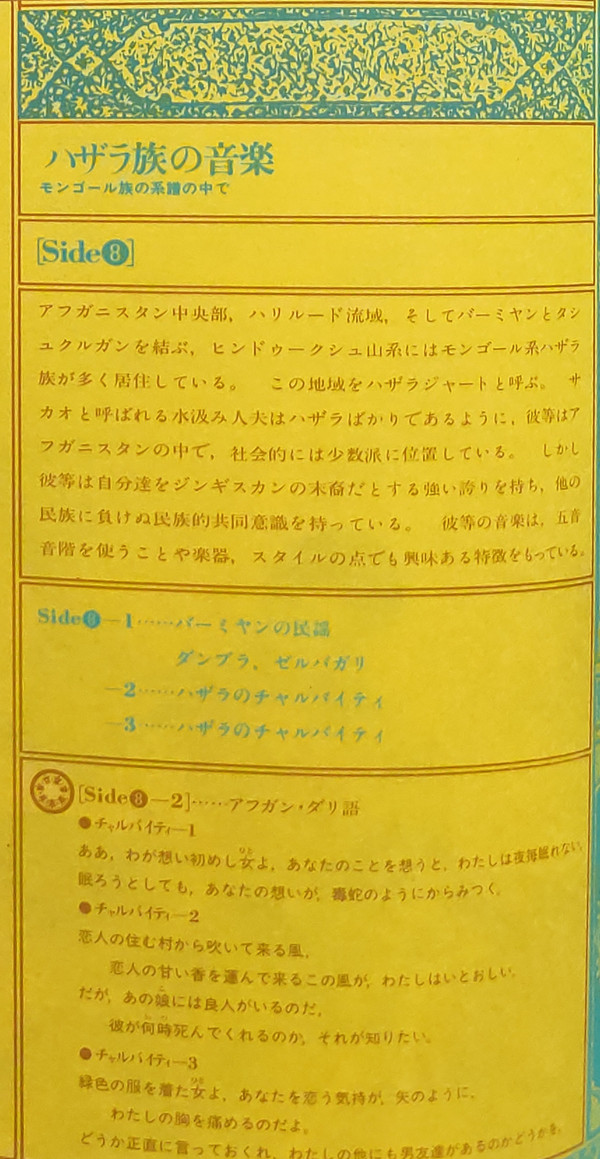 ハザラ族の音楽
モンゴール族の系譜の中で
[Side❽]
アフガニスタン中央部，ハリルード流域，そしてバーミヤンとタシ
ュクルガンを結ぶ，ヒンドゥークシュ山系にはモンゴール系ハザラ
族が多く居住している。　この地域をハザラジャートと呼ぶ。　サ
カオと呼ばれる水汲み人夫はハザラばかりであるように，彼等はア
フガニスタンの中で，社会的には少数派に位置している。　しかし
彼等は自分達をジンギスカンの末裔だとする強い誇りを持ち，他の
民族に負けぬ民族的共同意識を持っている。　彼等の音楽は，五音
音階を使うことや楽器，スタイルの点でも興味ある特徴をもっている。
Side❽—1……バーミヤンの民謡
ダンブラ，ゼルバガリ
—2……ハザラのチャルバイティ
—3……ハザラのチャルバイティ
[Side❽—2]……アフガン・ダリ語
●チャルバイティ—1
ああ，わが想い初めし女よ，あなたのことを想うと，わたしは夜毎眠れない，
眠ろうとしても，あなたの想いが，毒蛇のようにからみつく。
●チャルバイティ—2
恋人の住む村から吹いて来る風，
恋人の甘い香を運んで来るこの風が，わたしはいとおしい。
だが，あの娘には良人がいるのだ，
彼が何時死んでくれるのか，それが知りたい。
●チャルバイティ—3
緑色の服を着た女よ，あなたを恋う気持が，矢のように，
わたしの胸を痛めるのだよ。
どうか正直に言っておくれ，わたしの他にも男友達があるのかどうかを。